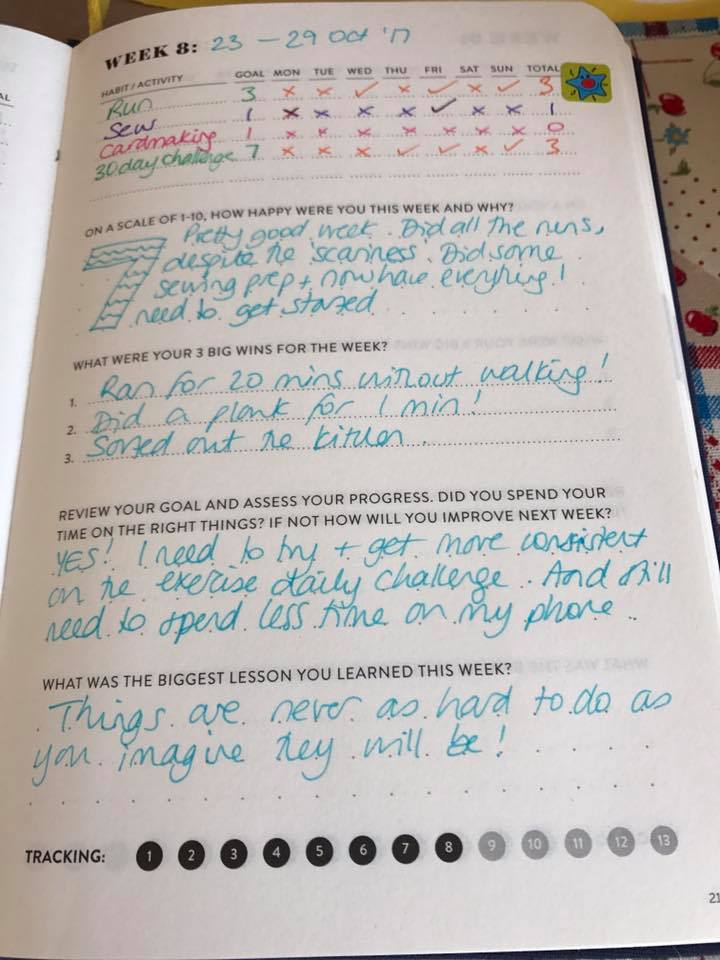 WEEK 8: 23 - 29 Oct '17
HABIT / ACTIVITY GOAL MON TUE WED THU FRI SAT SUN TOTAL
Run 3 x x ✓ x ✓ x ✓ 3
Sew 1 x x x x ✓ x x 1
Cardmaking 1 x x x x x x x 0
30 day challenge 7 x x x ✓ ✓ x ✓ 3
ON A SCALE OF 1-10, HOW HAPPY WERE YOU THIS WEEK AND WHY?
7 Pretty good week. Did all the runs,
despite the 'scariness. Did some
sewing prep + now have everything I
need to get started
WHAT WERE YOUR 3 BIG WINS FOR THE WEEK?
1. Ran for 20 mins without walking!
2. Did a plank for 1 min!
3. Sorted out the kitchen.
REVIEW YOUR GOAL AND ASSESS YOUR PROGRESS. DID YOU SPEND YOUR
TIME ON THE RIGHT THINGS? IF NOT HOW WILL YOU IMPROVE NEXT WEEK?
YES! I need to try + get more consistent
on the exercise daily challenge. And still
need to spend less time on my phone.
WHAT WAS THE BIGGEST LESSON YOU LEARNED THIS WEEK?
Things are never as hard to do as
you imagine they will be!
TRACKING: 1 2 3 4 5 6 7 8 9 10 11 12 13
21